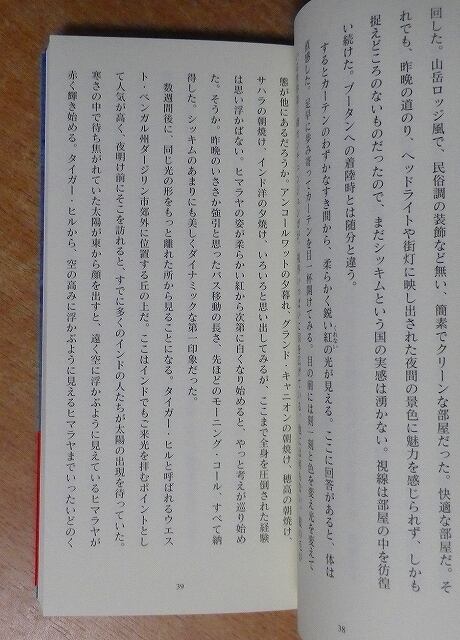 回した。山岳ロッジ風で、民俗調の装飾など無い、簡素でクリーンな部屋だった。快適な部屋だ。そ
れでも、昨晩の道のり、ヘッドライトや街灯に映し出された夜間の景色に魅力を感じられず、しかも
捉えどころのないものだったので、まだシッキムという国の実感は湧かない。視線は部屋の中を彷徨
い続けた。ブータンへの着陸時とは随分と違う。
するとカーテンのわずかなすき間から、柔らかく鋭い紅の光が見える。ここに回答があると、体は
直感した。足早に歩み寄ってカーテンを目一杯開けてみる。目の前には刻一刻と色を変え光を変えて
態が他にあるだろうか。アンコールワットの夕暮れ、グランド・キャニオンの朝焼け、穂高の朝焼け、
サハラの朝焼け、インド洋の夕焼け、いろいろと思い出してみるが、ここまで全身を圧倒された経験
は思い浮かばない。ヒマラヤの姿が柔らかい紅から次第に白くなり始めると、やっと考えが巡り始め
た。そうか。昨晩のいささか強引と思ったバス移動の長さ、先ほどのモーニング・コール、すべて納
得した。シッキムのあまりにも美しくダイナミックな第一印象だった。
数週間後に、同じ光の形をもっと離れた所から見ることになる。タイガー・ヒルと呼ばれるウエス
ト・ベンガル州ダージリン市郊外に位置する丘の上だ。ここはインドでもご来光を拝むポイントとし
て人気が高く、夜明け前にそこを訪れると、すでに多くのインドの人たちが太陽の出現を待っていた。
寒さの中で待ち焦がれていた太陽が東から顔を出すと、遠く空に浮かぶように見えているヒマラヤが
赤く輝き始める。タイガー・ヒルから、空の高みに浮かぶように見えるヒマラヤまでいったいどのく
39
38